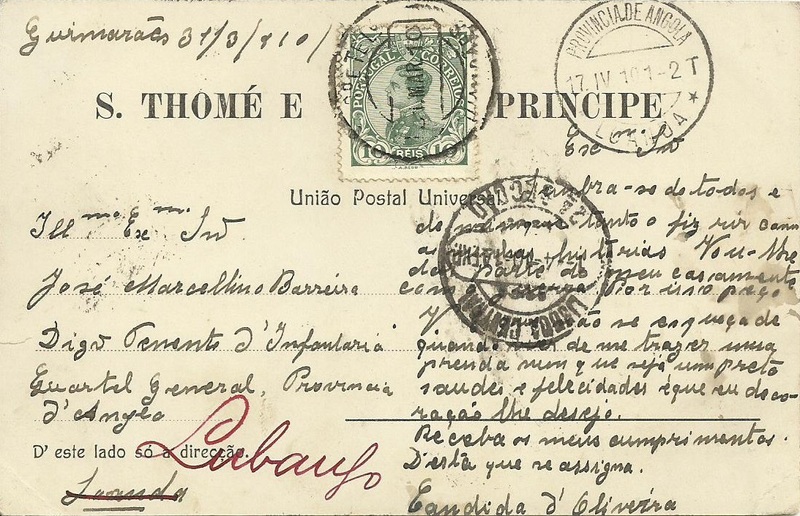 Guimarães 31/3/910
PORTUGAL CORREIO
MAR 10
10 RÉIS 10
PROVINCIA DE ANGOLA
17. IV 10 1-2 T
S. THOMÉ E PRINCIPE
União Postal Universal
LISBOA CENTRAL
2ª SECÇÃO
Ill.mo Ex.mo Snr
José Marcellino Barreira
Digo Tenente d'Infantaria
Quartel General, Provincia
d'Angéo
D'este lado só a direcção.
Loanda
Lubango
Exmo Snr
Lembra-se de todos e
de tanto o fiz rir com
as historias Vou-lhe
dar parte do meu casamento
com Por isso peço
V não se esqueça de
quando de me trazer uma
prenda nem que seja um preto
saudes e felicidades é que eu do co-
ração lhe desejo.
Receba os meus cumprimentos.
D'esta que se assigna.
Candida d'Oliveira